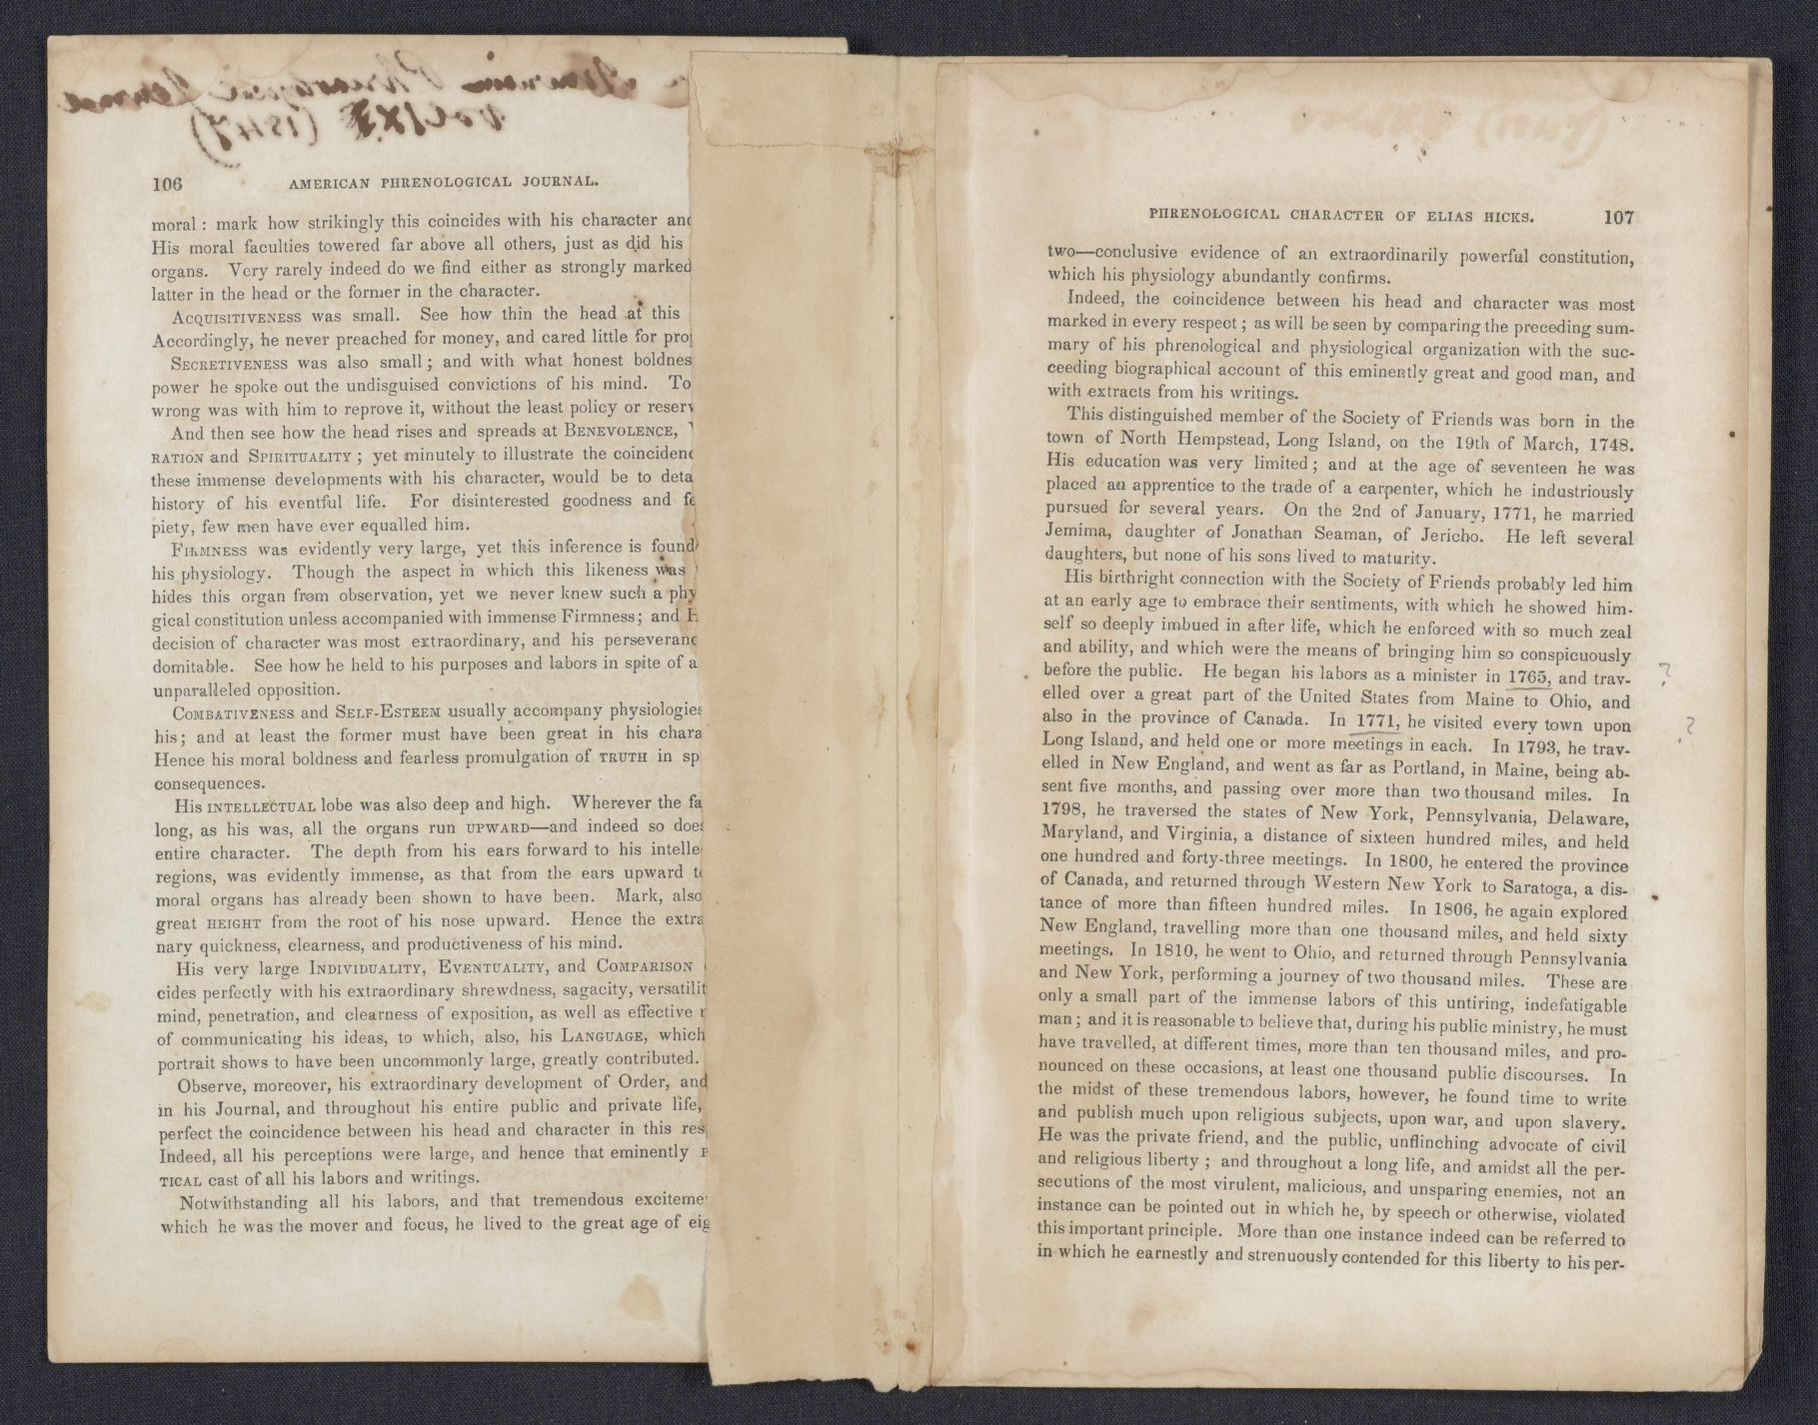 106 AMERICAN PHRENOLOGICAL JOURNAL.
moral : mark how strikingly this coincides with his character
His moral faculties towered far above all others, just as did his
organs. Very rarely indeed do we find either as strongly marked
latter in the head or the former in the character.
ACQUISITIVENESS was small. See how thin the head at this
Accordingly, he never preached for money, and cared little for
SECRETIVENESS was also small ; and with what honest
power he spoke out the undisguised convictions of his mind. To
wrong was with him to reprove it, without the least policy or
And then see how the head rises and spreads at BENEVOLENCE,
RATION and SPIRITUALITY ; yet minutely to illustrate the
these immense developments with his character, would be to
history of his eventful life. For disinterested goodness and
piety, few men have ever equalled him.
FIRMNESS was evidently very large, yet this inference is found
his physiology. Though the aspect in which this likeness was
hides this organ from observation, yet we never knew such a
gical constitution unless accompanied with immense Firmness ; and
decision of character was most extraordinary, and his
domitable. See how he held to his purposes and labors in spite of a
unparalleled opposition.
COMBATIVENESS and SELF-ESTEEM usually accompany
his ; and at least the former must have been great in his
Hence his moral boldness and fearless promulgation of TRUTH in
consequences.
His INTELLECTUAL lobe was also deep and high. Wherever the
long, as his was, all the organs run UPWARD—and indeed so
entire character. The depth from his ears forward to his
regions, was evidently immense, as that from the ears upward
moral organs has already been shown to have been. Mark,
great HEIGHT from the root of his nose upward. Hence the
nary quickness, clearness, and productiveness of his mind.
His very large INDIVIDUALITY, EVENTUALITY, and COMPARISON
cides perfectly with his extraordinary shrewdness, sagacity,
mind, penetration, and clearness of exposition, as well as effective
of communicating his ideas, to which, also, his LANGUAGE, which
portrait shows to have been uncommonly large, greatly contributed.
Observe, moreover, his extraordinary development of Order, and
in his Journal, and throughout his entire public and private life,
perfect the coincidence between his head and character in this
Indeed, all his perceptions were large, and hence that eminently
TICAL cast of all his labors and writings.
Notwithstanding all his labors, and that tremendous
which he was the mover and focus, he lived to the great age of
PHRENOLOGICAL CHARACTER OF ELIAS HICKS. 107
two—conclusive evidence of an extraordinarily powerful constitution,
which his physiology abundantly confirms.
Indeed, the coincidence between his head and character was most
marked in every respect ; as will be seen by comparing the preceding sum-
mary of his phrenological and physiological organization with the suc-
ceeding biographical account of this eminently great and good man, and
with extracts from his writings.
This distinguished member of the Society of Friends was born in the
town of North Hempstead, Long Island, on the 19th of March, 1748.
His education was very limited ; and at the age of seventeen he was
placed an apprentice to the trade of a carpenter, which he industriously
pursued for several years. On the 2nd of January, 1771, he married
Jemima, daughter of Jonathan Seaman, of Jericho. He left several
daughters, but none of his sons lived to maturity.
His birthright connection with the Society of Friends probably led him
at an early age to embrace their sentiments, with which he showed him-
self so deeply imbued in after life, which he enforced with so much zeal
and ability, and which were the means of bringing him so conspicuously
before the public. He began his labors as a minister in 1765, and trav- ?
elled over a great part of the United States from Maine to Ohio, and
also in the province of Canada. In 1771, he visited every town upon ?
Long Island, and held one or more meetings in each. In 1793, he trav-
elled in New England, and went as far as Portland, in Maine, being ab-
sent five months, and passing over more than two thousand miles. In
1798, he traversed the states of New York, Pennsylvania, Delaware,
Maryland, and Virginia, a distance of sixteen hundred miles, and held
one hundred and forty-three meetings. In 1800, he entered the province
of Canada, and returned through Western New York to Saratoga, a dis-
tance of more than fifteen hundred miles. In 1806, he again explored
New England, travelling more than one thousand miles, and held sixty
meetings. In 1810, he went to Ohio, and returned through Pennsylvania
and New York, performing a journey of two thousand miles. These are
only a small part of the immense labors of this untiring, indefatigable
man ; and it is reasonable to believe that, during his public ministry, he must
have travelled, at different times, more than ten thousand miles, and pro-
nounced on these occasions, at least one thousand public discourses. In
the midst of these tremendous labors, however, he found time to write
and publish much upon religious subjects, upon war, and upon slavery.
He was the private friend, and the public, unflinching advocate of civil
and religious liberty ; and throughout a long life, and amidst all the per-
secutions of the most virulent, malicious, and unsparing enemies, not an
instance can be pointed out in which he, by speech or otherwise, violated
this important principle. More than one instance indeed can be referred to
in which he earnestly and strenuously contended for this liberty to his per-